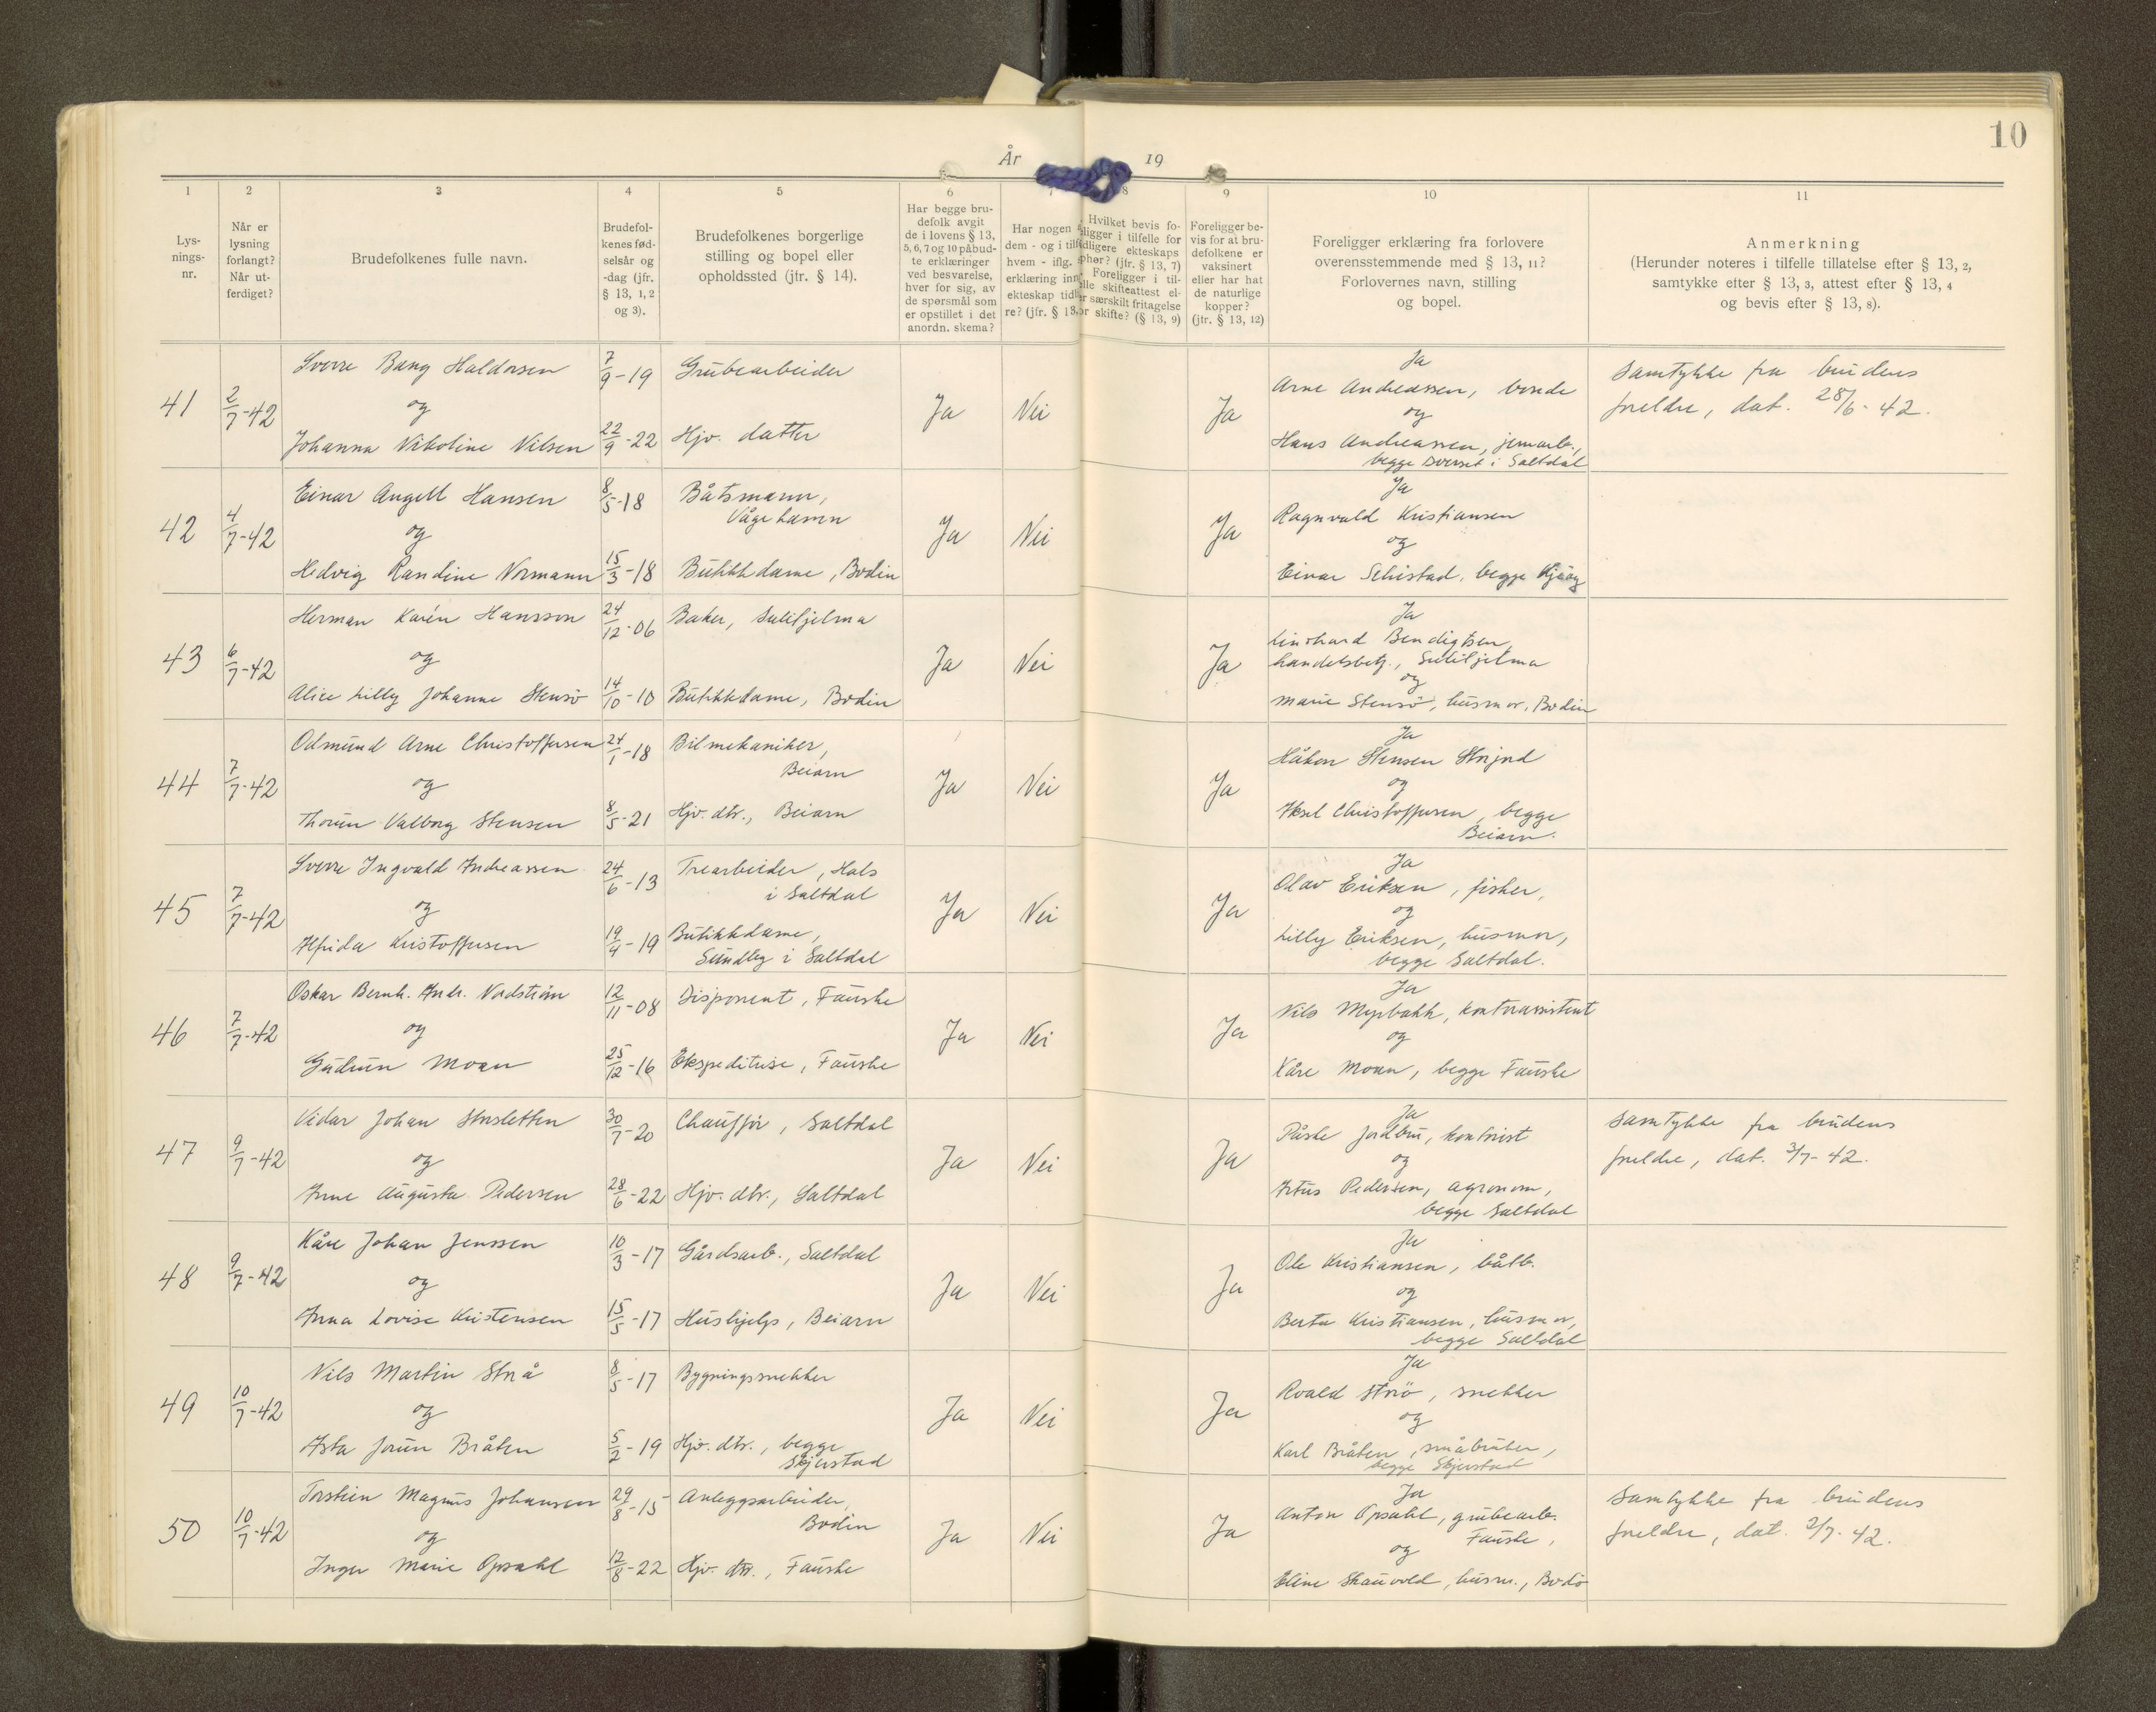 10
År 19
1 2 3 4 5 6 7 8 9 10 11
Lys-
nings-
nr.
Når er
lysning
forlangt?
Når ut-
ferdiget?
Brudefolkenes fulle navn.
Brudefol-
kenes fød-
selsår og
-dag (jfr.
§ 13, 1, 2
og 3).
Brudefolkenes borgerlige
stilling og bopel eller
opholdssted (jfr. § 14).
Har begge bru-
defolk avgit
de i lovens § 13,
5, 6, 7 og 10 påbud-
te erklæringer
ved besvarelse,
hver for sig, av
de spørsmål som
er opstillet i det
anordn. skema?
Har nogen
dem - og i tilf
hvem - iflg.
erklæring inn
ekteskap tidl
re? (jfr. § 13,
Hvilket bevis fo-
ligger i tilfelle for
tidligere ekteskaps
ophør? (jfr. § 13, 7)
Foreligger i til-
felle skifteattest el-
ler særskilt fritagelse
for skifte? (§ 13, 9)
Foreligger be-
vis for at bru-
defolkene er
vaksinert
eller har hat
de naturlige
kopper?
(jfr. § 13, 12)
Foreligger erklæring fra forlovere
overensstemmende med § 13, 11?
Forlovernes navn, stilling
og bopel.
Anmerkning
(Herunder noteres i tilfelle tillatelse efter § 13, 2,
samtykke efter § 13, 3, attest efter § 13, 4
og bevis efter § 13, 8).
41 2/7-42 Sverre Bang Haldorsen 7/9-19 Grubearbeider
og
Johanna Nikoline Nilsen 22/9-22 Hjv. datter
Ja Nei Ja
Ja
Arne Andreassen, bonde
og
Hans Andreassen, jernarb.,
begge Evenset i Saltdal
Samtykke fra brudens
foreldre, dat. 28/6-42.
42 4/7-42 Einar Angell Hansen 8/5-18 Båtsmann,
Vågehamn
og
Hedvig Randine Normann 15/3-18 Butikkdame, Bodin
Ja Nei Ja
Ja
Ragnvald Kristiansen
og
Einar Schistad, begge
43 6/7-42 Herman Karén Hansson 24/12-06 Baker, Sulitjelma
og
Alice Lilly Johanne Stensø 14/10-10 Butikkdame, Bodin
Ja Nei Ja
Ja
Linkhard Bendigtsen,
handelsbetj., Sulitjelma
og
Marie Stensø, husmor, Bodin
44 7/7-42 Odmund Arne Christoffersen 24/1-18 Bilmekaniker,
Beiarn
og
Thorun Valborg Stensen 8/5-21 Hjv. dtr., Beiarn
Ja Nei Ja
Ja
Håkon Stensen Storjord
og
Aksel Christoffersen, begge
Beiarn.
45 7/7-42 Sverre Ingvald Andreassen 24/6-13 Trearbeider, Hals
i Saltdal
og
Alfrida Kristoffersen 19/4-19 Butikkdame,
Sundby i Saltdal
Ja Nei Ja
Ja
Olav Eriksen, fisker,
og
Lilly Eriksen, husmor,
begge Saltdal.
46 7/7-42 Oskar Bernh. Andr. Nordstrøm 12/11-08 Disponent, Fauske
og
Gudrun Moan 25/12-16 Ekspeditrise, Fauske
Ja Nei Ja
Ja
Nils Myrbakk, kontorassistent
og
Kåre Moan, begge Fauske
47 9/7-42 Vidar Johan Storsletten 30/7-20 Chauffør, Saltdal
og
Anne Augusta Pedersen 28/6-22 Hjv. dtr., Saltdal
Ja Nei Ja
Ja
Påske Jordbru, kontorist
og
Artur Pedersen, agronom,
begge Saltdal
Samtykke fra brudens
foreldre, dat. 3/7-42.
48 9/7-42 Kåre Johan Jenssen 10/3-17 Gårdsarb., Saltdal
og
Anna Lovise Kristensen 15/5-17 Hushjelp, Beiarn
Ja Nei Ja
Ja
Ole Kristiansen, båtb.
og
Berta Kristiansen, husmor,
begge Saltdal
49 10/7-42 Nils Martin Strå 8/5-17 Bygningssnekker
og
Asta Jorun Bråten 5/2-19 Hjv. dtr., begge
Skjerstad
Ja Nei Ja
Ja
Roald Strø, snekker
og
Karl Bråten, småbruker,
begge Skjerstad
50 10/7-42 Torstein Magnus Johansen 29/8-15 Anleggsarbeider,
Bodin
og
Inger Marie Opsahl 12/8-22 Hjv. dtr., Fauske
Ja Nei Ja
Ja
Anton Opsahl, grubearb.
Fauske,
og
Eline Skauvold, husm., Bodø
Samtykke fra brudens
foreldre, dat. 2/7-42.